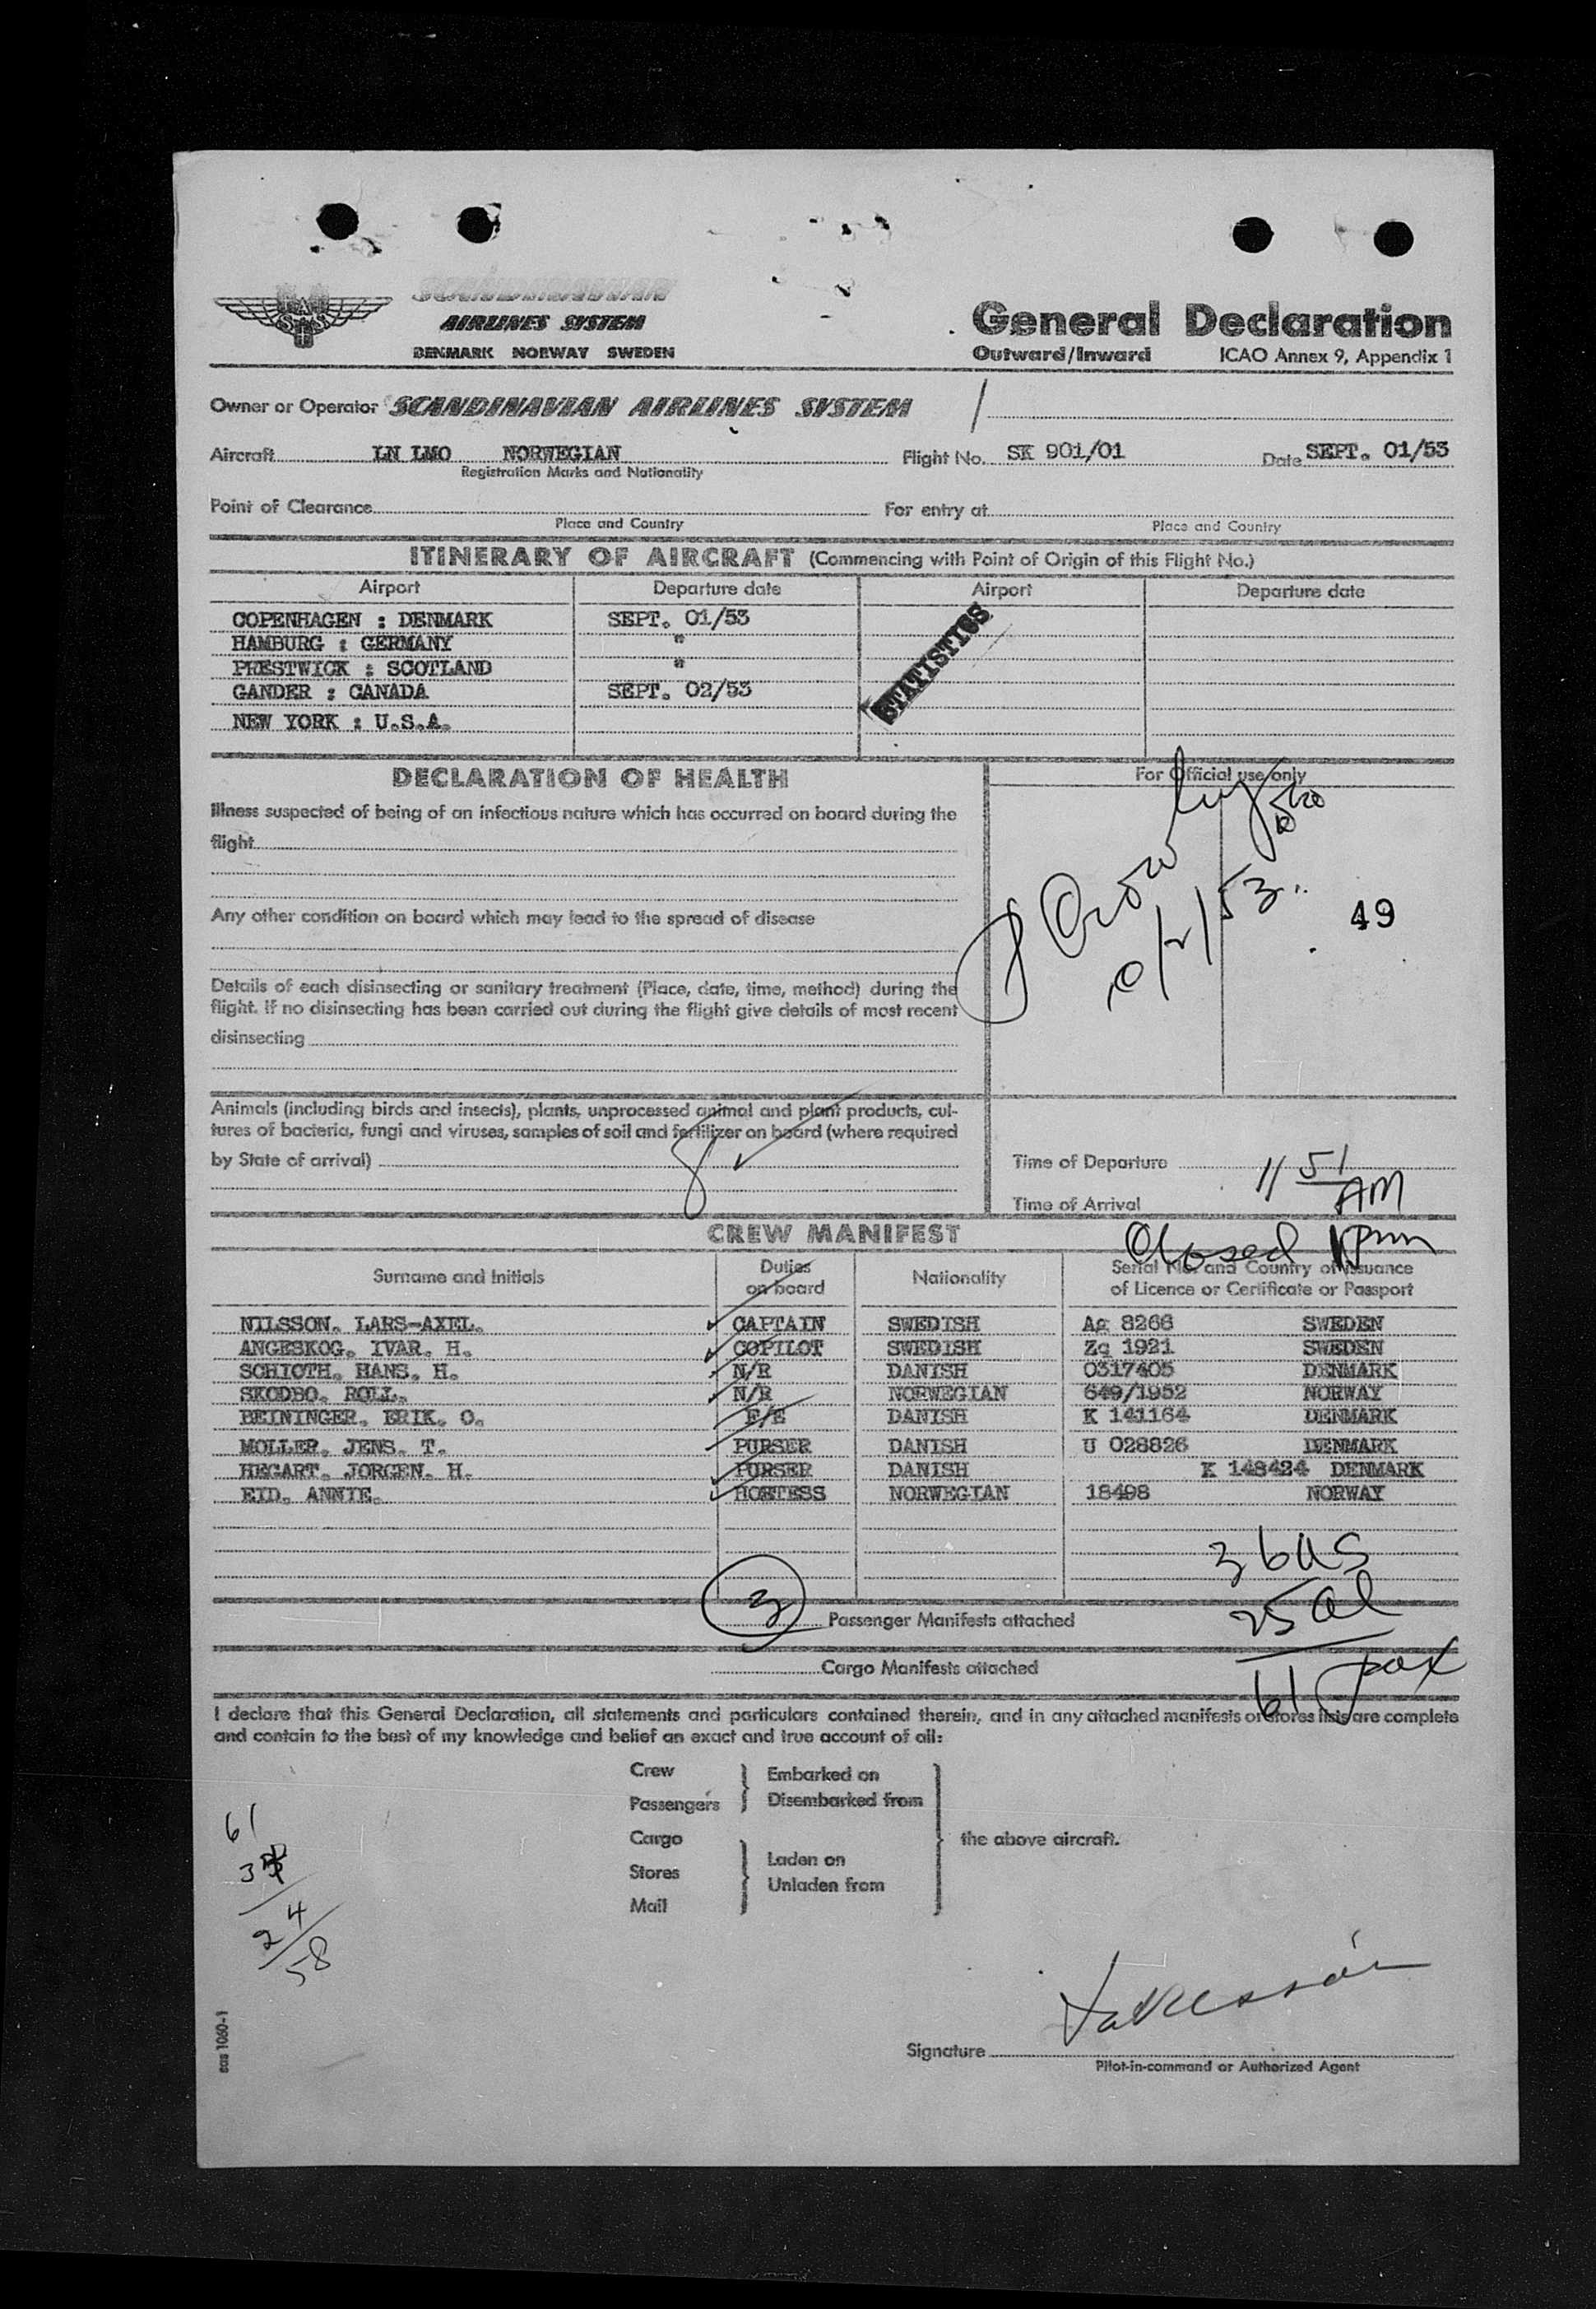 SCANDINAVIAN
AIRLINES SYSTEM
DENMARK NORWAY SWEDEN
General Declaration
Outward/Inward ICAO Annex 9, Appendix 1
Owner or Operator SCANDINAVIAN AIRLINES SYSTEM
Aircraft LN LMO NORWEGIAN Flight No. SK 901/01 Date SEPT. 01/53
Registration Marks and Nationality
Point of Clearance For entry at
Place and Country Place and Country
ITINERARY OF AIRCRAFT (Commencing with Point of Origin of this Flight No.)
Airport Departure date Airport Departure date
COPENHAGEN : DENMARK SEPT. 01/53
HAMBURG : GERMANY "
PRESTWICK : SCOTLAND "
GANDER : CANADA SEPT. 02/53
NEW YORK : U.S.A.
STATISTICS
DECLARATION OF HEALTH
For Official use only
Illness suspected of being of an infectious nature which has occurred on board during the
flight
49
Any other condition on board which may lead to the spread of disease
Details of each disinsecting or sanitary treatment (Place, date, time, method) during the
flight. If no disinsecting has been carried out during the flight give details of most recent
disinsecting
Animals (including birds and insects), plants, unprocessed animal and plant products, cul-
tures of bacteria, fungi and viruses, samples of soil and fertilizer on board (where required
by State of arrival)
8
Time of Departure
11 51 AM
Time of Arrival
CREW MANIFEST
Closed 1 pm
Surname and Initials Duties on board Nationality Serial No. and Country of Issuance
of Licence or Certificate or Passport
NILSSON. LARS-AXEL. CAPTAIN SWEDISH Ag 8266 SWEDEN
ANGESKOG. IVAR. H. COPILOT SWEDISH Zq 1921 SWEDEN
SCHIOTH. HANS. H. N/R DANISH 0317405 DENMARK
SKODBO. ROLL. N/R NORWEGIAN 649/1952 NORWAY
BEININGER. ERIK. O. F/E DANISH K 141164 DENMARK
MOLLER. JENS. T. PURSER DANISH U 028826 DENMARK
HEGART. JORGEN. H. PURSER DANISH K 148424 DENMARK
EID. ANNIE. HOSTESS NORWEGIAN 18498 NORWAY
36 US
25 al
61 pax
3 Passenger Manifests attached
Cargo Manifests attached
I declare that this General Declaration, all statements and particulars contained therein, and in any attached manifests or stores lists are complete
and contain to the best of my knowledge and belief an exact and true account of all:
Crew Embarked on
Passengers Disembarked from
Cargo the above aircraft.
Stores Laden on
Mail Unladen from
61
24
58
Signature
Pilot-in-command or Authorized Agent
sas 1060-1